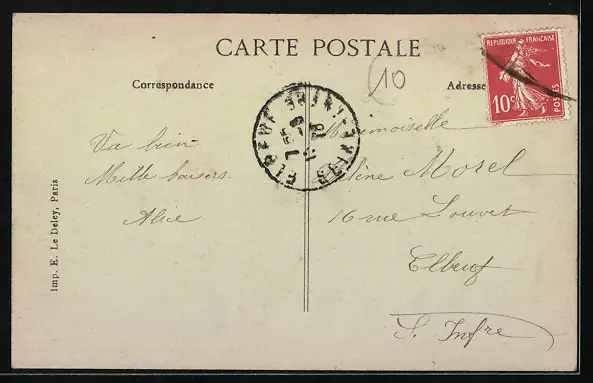 CARTE POSTALE
10
RÉPUBLIQUE FRANÇAISE
10c
POSTES
Correspondance
Adresse
ELBEUF SEINE INFRE
Va bien
Mille baisers.
Alice
Mademoiselle
Hélène Morel
16 rue Louvet
Elbeuf
S. Infre
Imp. E. Le Deley, Paris